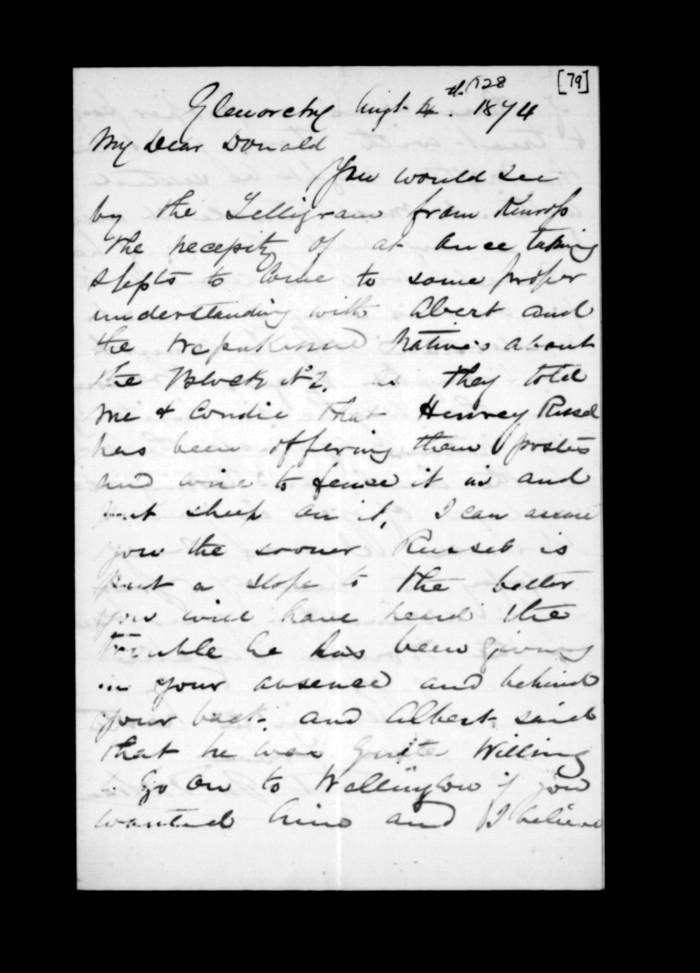 728
[79]
Glenorchy Augt 4th. 1874
My Dear Donald
You would see
by the Telligram from Kinross
the necessity of at once taking
stepts to come to some proper
understanding with Abert and
the Natives about
the Block No 2. as they told
me & Condie that Henrey Russel
has been offering them postes
and wire to fense it in and
put sheep on it, I can assure
you the sooner Russel is
put a stope to the better
you will have heard the
trouble he has been giving
in your absence and behind
your back. and Albert said
that he was quite Willing
to Go on to Wellington if you
wanted him and I believe